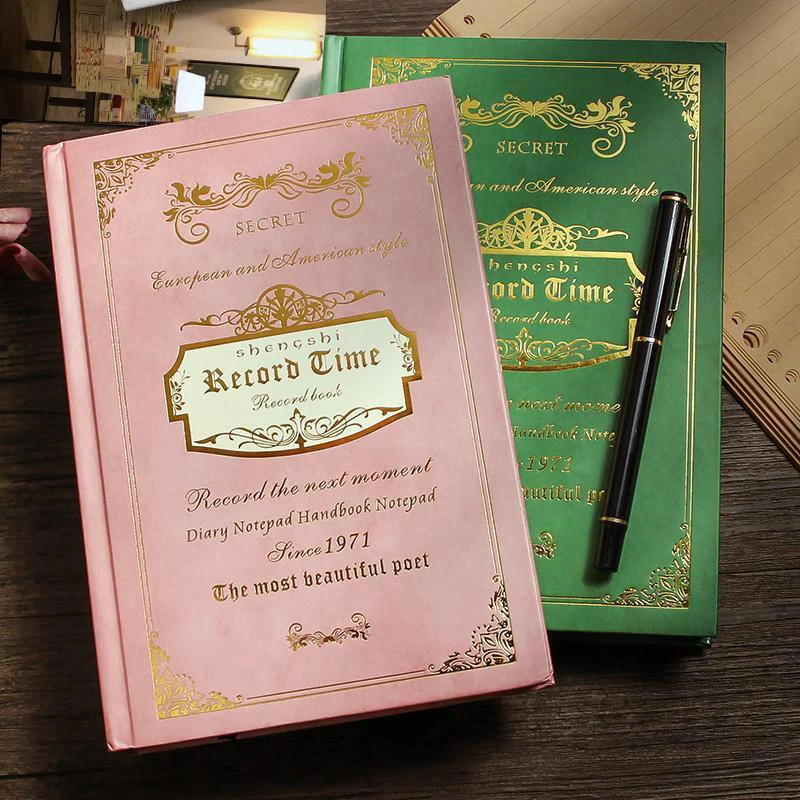 SECRET
European and American style
shengshi
Record Time
Record book
Record the next moment
Diary Notepad Handbook Notepad
Since 1971
The most beautiful poet
SECRET
and American style
shengshi
Time
Record book
next
Handbook
1971